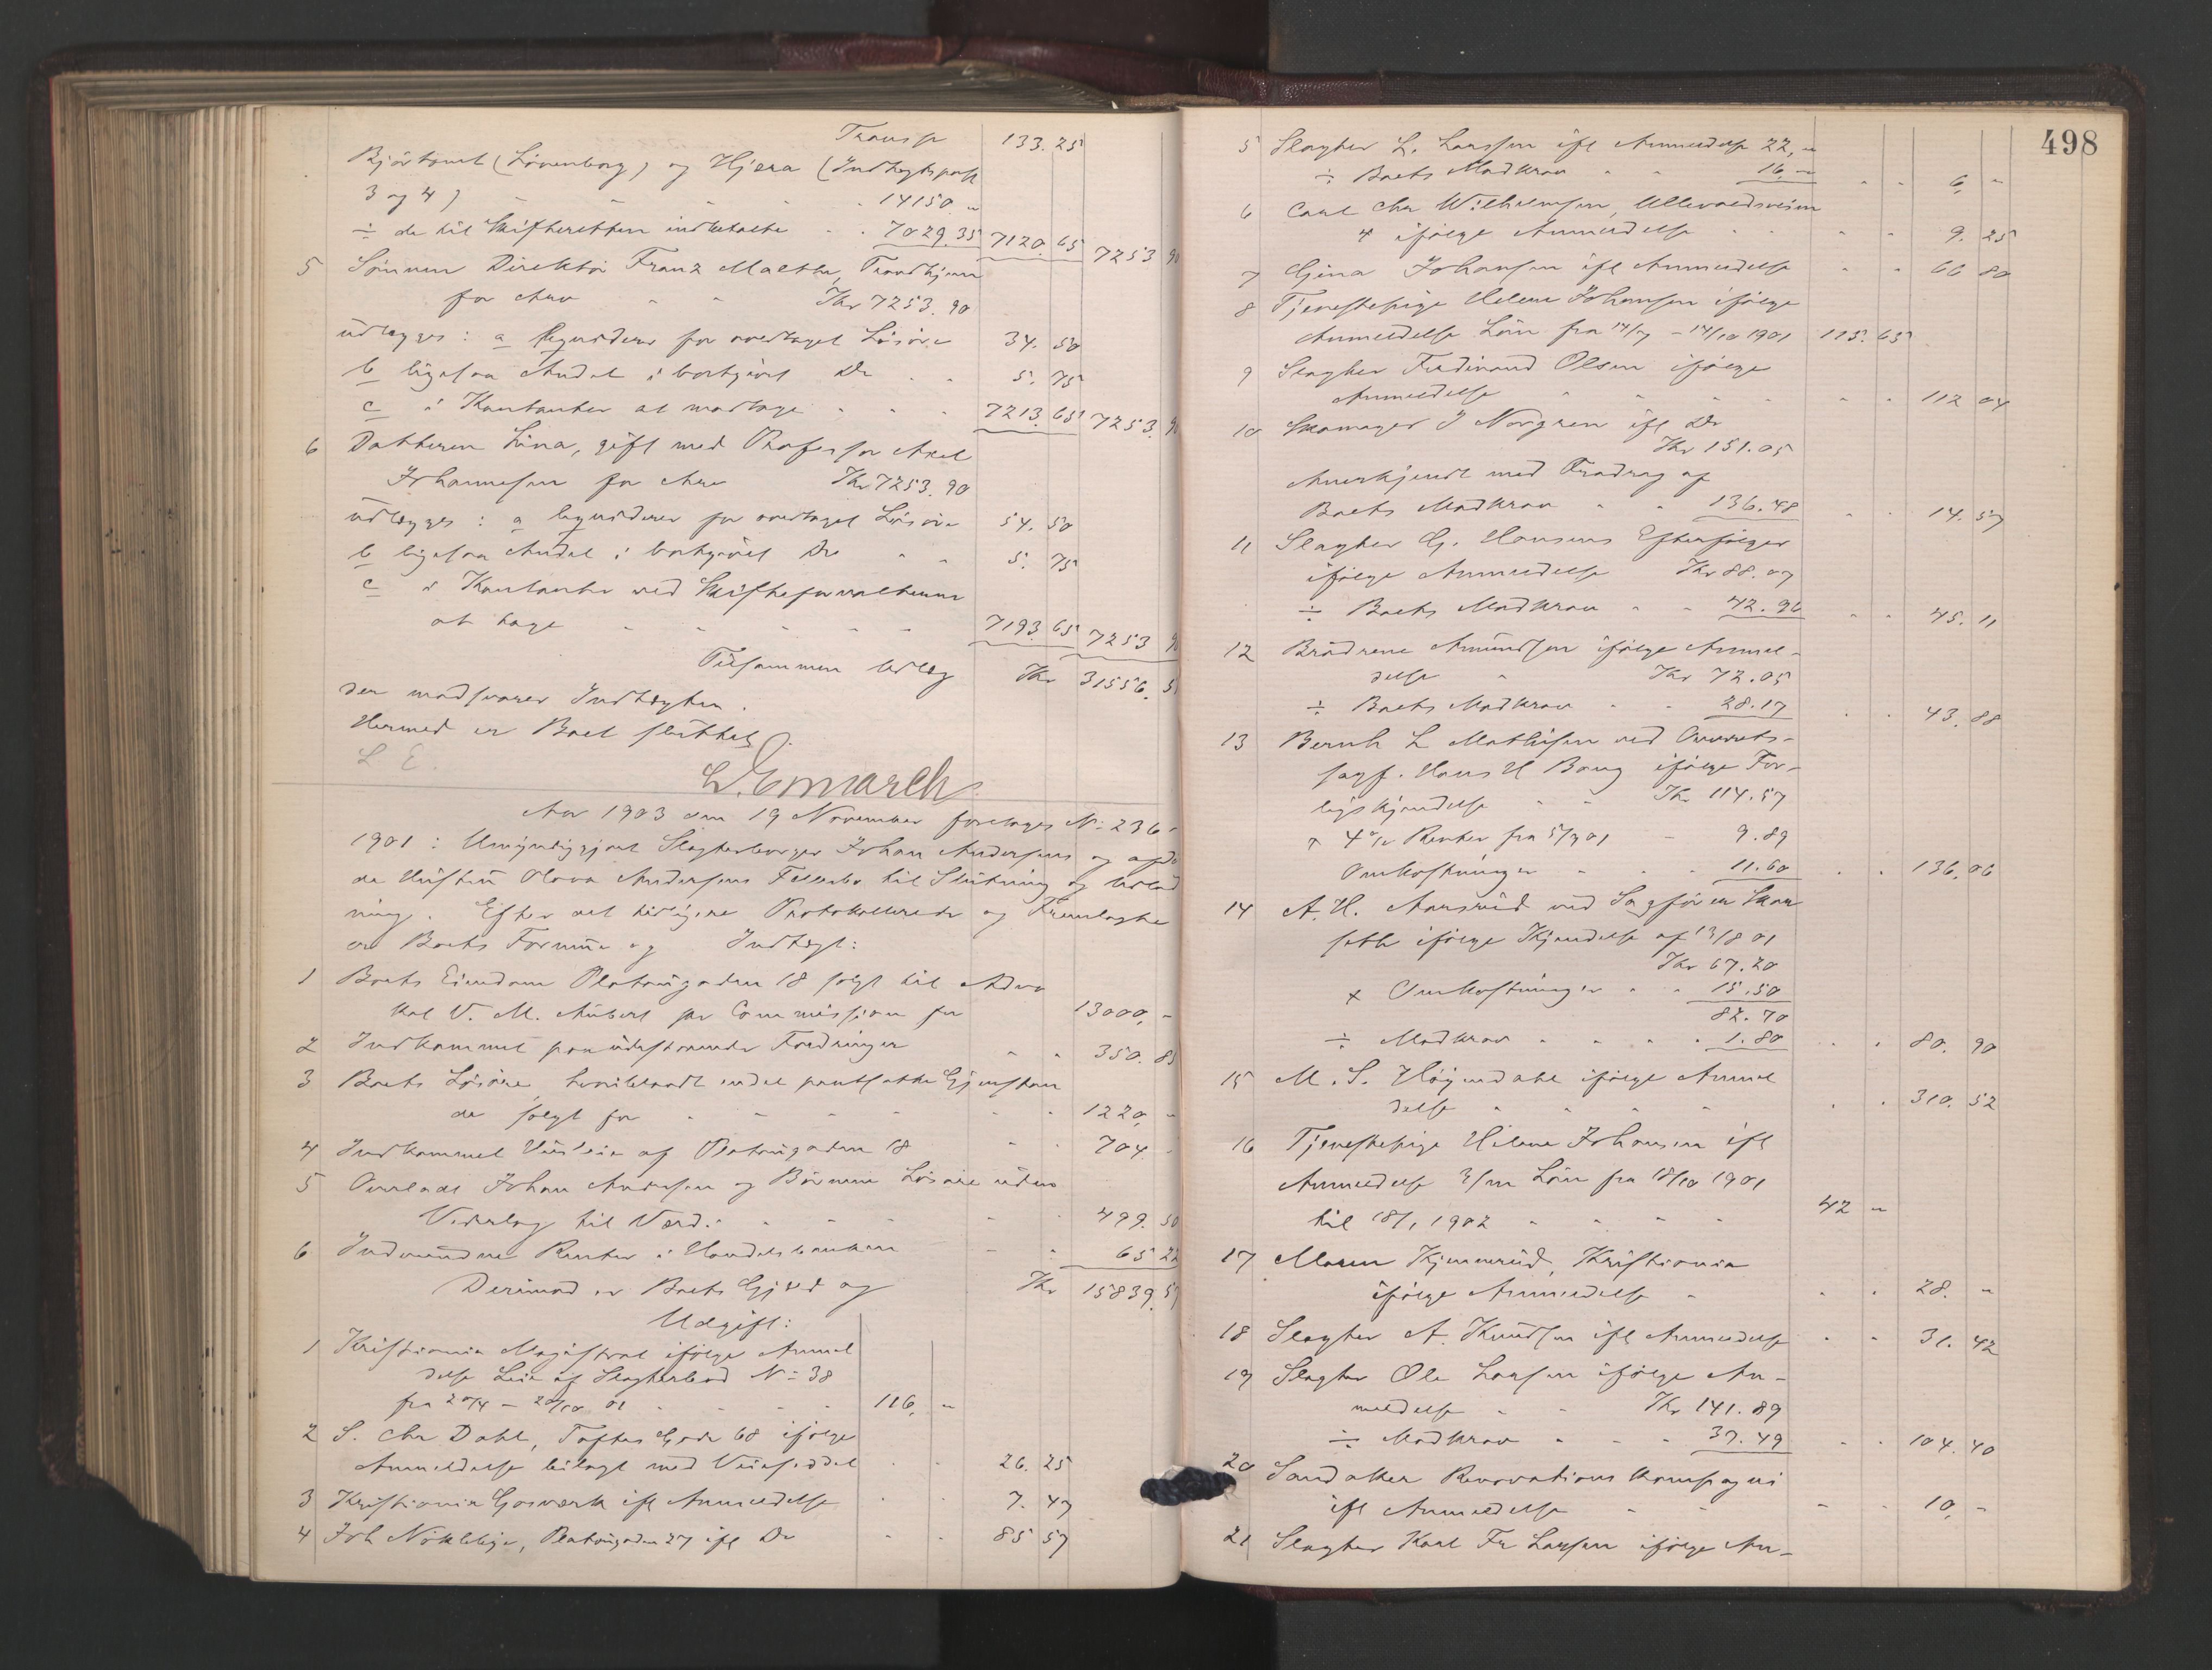 Transp 133.25
Bjórtomt (Lövenborg) og Hjøra (Indtægtspost
3 og 4) - - - - 14150 "
÷ de til Skifteretten indbetalte - - 7029.35 7120.65 7253 90
5 Sønnen Direktør Franz Malthe, Trondhjem
for Arv - - Kr 7253.90
udlægges: a liqviderer for overtaget Løsøre 34.50
b ligesaa Andel i bortgivet Do - - 5.75
c i Kontanter at modtage - - - 7213.65 7253.90
6 Datteren Lina, gift med Professor Axel
Johannesen for Arv Kr 7253.90
udlægges: a liqviderer for overtaget Løsøre 54.50
b ligesaa Andel i bortgivet Do - - 5.75
c i Kontanter ved Skifteforvalteren
at hæve - - - - - 7193.65 7253 90
Tilsammen Udlæg Kr 31556.5
der modsvarer Indtægten.
Hermed er Boet sluttet
L. E.
L. Esmarch
Aar 1903 den 19 November foretoges No 236-
1901: Umyndiggjort Slagterborger Johan Andersens og afdø
de Hustru Olava Andersens Fællesbo til Slutning og Udlod
ning. Efter det tidligere Protokollerede og Fremlagte
er Boets Formue og Indtægt:
1 Boets Eiendom Platousgaden 18 solgt til Advo
kat V. M. Aubert pr Commission for 13000, -
2 Indkommet paa udestaaende Fordringer - - 350.85
3 Boets Løsøre, hvoriblandt endel pantsatte Gjenstan
de solgt for - - - - - - 1220, -
4 Indkommet Husleie af Platousgaden 18 - - 704 -
5 Overladt Johan Andersen og Børnene Løsøre uden
Vederlag til Værdi - - - - - 499.50
6 Indvundne Renter i Handelsbanken - - 65 22
Derimod er Boets Gjæld og Kr 15839.57
Udgift:
1 Kristiania Magistrat ifølge Anmel
delse Leie af Slagterbod No 38
fra 20/4 - 20/10 01 - - - - 116, "
2 S. Chr Dahl, Toftes Gade 68 ifølge
Anmeldelse bilagt med Veieseddel - - 26.25
3 Kristiania Gasværk ifl Anmeldelse - - 7.47
4 Joh Nøkleby, Platousgaden 27 ifl Do - - 85 57
498
5 Slagter L. Larssen ifl Anmeldelse 22, "
÷ Boets Modkrav - - 16, " - - 6, "
6 Carl Chr Wilhelmsen, Ullevoldsveien
4 ifølge Anmeldelse - - - - 9.25
7 Gina Johansen ifl Anmeldelse - - 66 80
8 Tjenestepige Helene Johansen ifølge
Anmeldelse Løn fra 14/7 - 14/10 1901 115.65
9 Slagter Ferdinand Olsen ifølge
Anmeldelse - - - - - - 112 04
10 Skomager J Norgren ifl Do
Kr 151.05
Anerkjendt med Fradrag af
Boets Modkrav - - 136.48 - - 14.57
11 Slagter G. Hansens Efterfølger
ifølge Anmeldelse Kr 88.07
÷ Boets Modkrav - - 42.96 - - 45.11
12 Brødrene Amundsen ifølge Anmel-
delse - Kr 72.05
÷ Boets Modkrav - - 28.17 - - 43.88
13 Bernh L Mathisen ved Overrets-
sagf. Hans H Bang ifølge For-
ligskjendelse - - Kr 114.57
+ 4% Renter fra 5/9 01 - 9.89
Omkostninger - - - 11.60 - - 136.06
14 A. H. Aarsrud ved Sagfører Skar
seth ifølge Kjendelse af 13/8 01
Kr 67.20
+ Omkostninger - - 15.50
82.70
÷ Modkrav - - - - 1.80 - - 80.90
15 M. S. Høyendahl ifølge Anmel
delse - - - - - - 310.52
16 Tjenestepige Helene Johansen ifl
Anmeldelse 3/m Løn fra 18/10 1901
til 18/1 1902 - - - - 42 "
17 Maren Kjennerud, Kristiania
ifølge Anmeldelse - - - 28. "
18 Slagter A. Knudsen ifl Anmeldelse - - 31.42
19 Slagter Ole Larsen ifølge An-
meldelse - - Kr 141.89
÷ Modkrav - - - 37.49 - - 104.40
20 Sandaker Renovations Kompagni
ifl Anmeldelse - - - - 10, -
21 Slagter Karl Fr Larsen ifølge An-